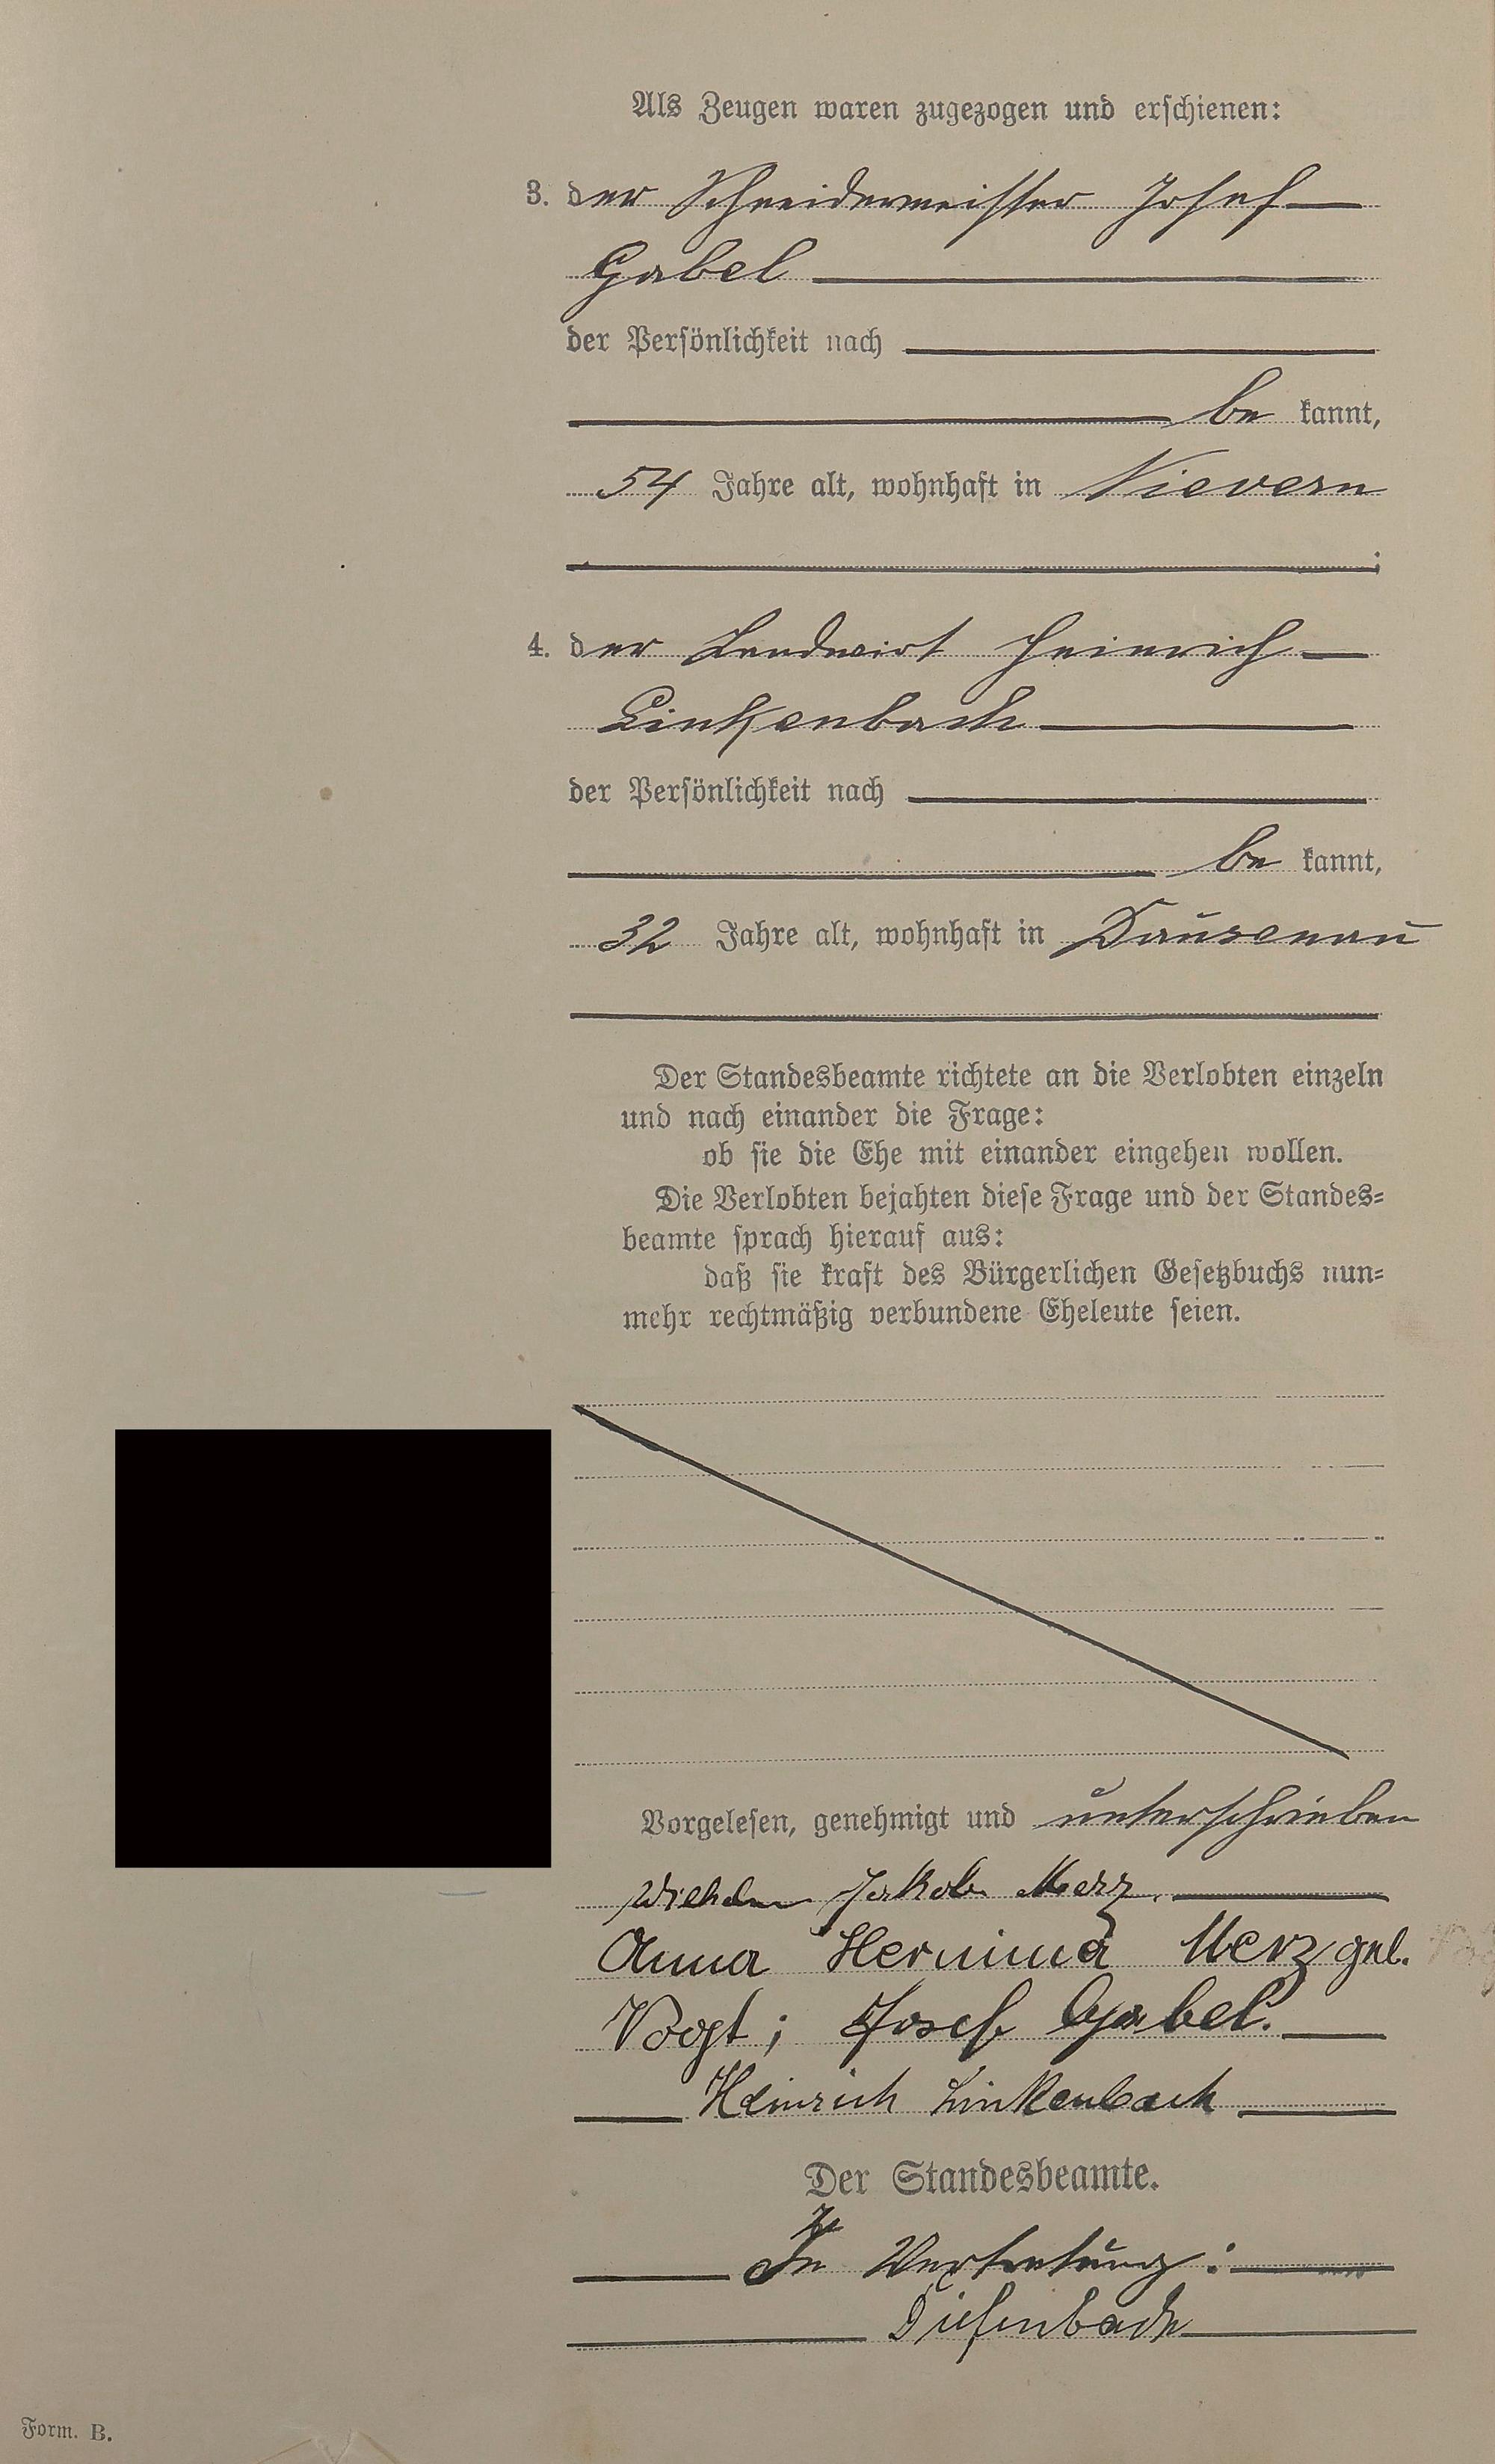 Als Zeugen waren zugezogen und erschienen:
3. der Schneidermeister Josef
Gabel
der Persönlichkeit nach
be kannt,
54 Jahre alt, wohnhaft in Nievern
;
4. der Landwirt Heinrich
Linkenbach
der Persönlichkeit nach
be kannt,
32 Jahre alt, wohnhaft in Dausenau
Der Standesbeamte richtete an die Verlobten einzeln
und nach einander die Frage:
ob sie die Ehe mit einander eingehen wollen.
Die Verlobten bejahten diese Frage und der Standes=
beamte sprach hierauf aus:
daß sie kraft des Bürgerlichen Gesetzbuchs nun=
mehr rechtmäßig verbundene Eheleute seien.
Vorgelesen, genehmigt und unterschrieben
Wilhelm Jakob Merz.
Anna Hermina Merz geb.
Vogt; Josef Gabel.
Heinrich Linkenbach
Der Standesbeamte.
In Vertretung:
Diefenbach
Form. B.